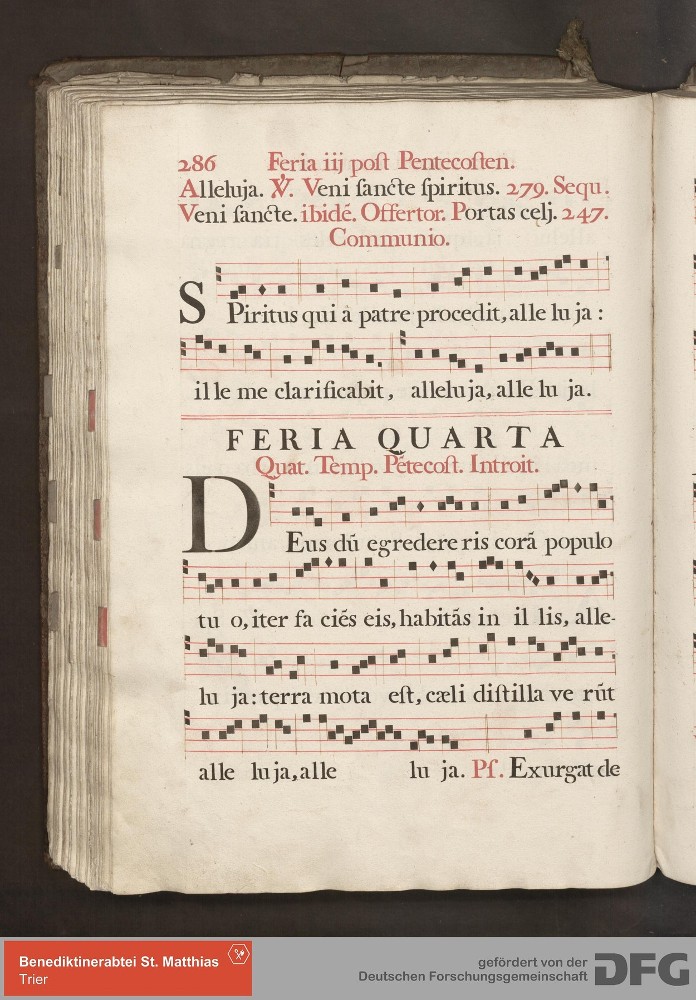 286 Feria iij poſt Pentecoſten.
Alleluja. ℣. Veni ſancte ſpiritus. 279. Sequ.
Veni ſancte. ibidē. Offertor. Portas cęlj. 247.
Communio.
SPiritus qui à patre procedit, alle lu ja :
il le me clarificabit, alleluja, alle lu ja.
FERIA QUARTA
Quat. Temp. Pētecoſt. Introit.
DEus dū egredere ris corā populo
tu o, iter fa ciēs eis, habitās in il lis, alle-
lu ja: terra mota eſt, cæli diſtilla ve rūt
alle lu ja, alle lu ja. Pſ. Exurgat de
Benediktinerabtei St. Matthias
Trier
gefördert von der
Deutschen Forschungsgemeinschaft
DFG